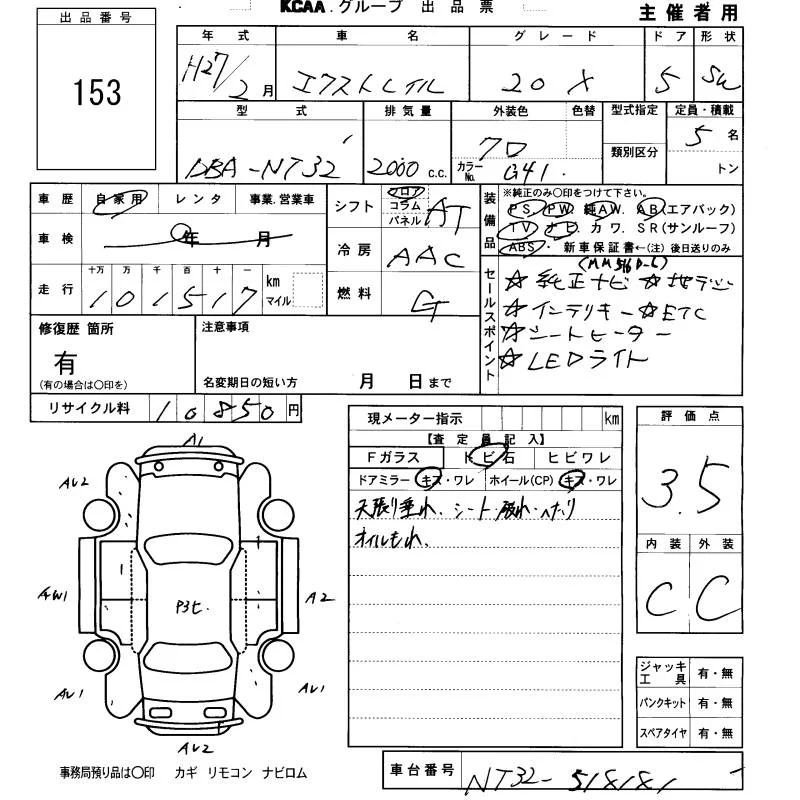 KCAA.グループ 出品票
主催者用
出品番号
153
年式 車名 グレード ドア 形状
H27/2月 エクストレイル 20 X 5 SW
型式 排気量 外装色 色替 型式指定 定員・積載
DBA-NT32 2000c.c. クロ 5名
カラーNo. G41 類別区分 トン
車歴 自家用 レンタ 事業.営業車
シフト フロア コラム パネル AT
装備品 ※純正のみ○印をつけて下さい。
PS. PW. 純AW. AB(エアバック)
TV ナビ カワ. SR(サンルーフ)
ABS・ 新車保証書←(注)後日送りのみ
車検 年 月
冷房 AAC
走行 十万 万 千 百 十 一
101517 km マイル
燃料 G
セールスポイント
(MM516D-L)
☆純正ナビ ☆地デジ
☆インテリキー ☆ETC
☆シートヒーター
☆LEDライト
修復歴 箇所
有
(有の場合は○印を)
注意事項
名変期日の短い方 月 日まで
リサイクル料 10850円
現メーター指示 km
【査定員記入】
Fガラス トビ石 ヒビワレ
ドアミラー キズ・ワレ ホイール(CP) キズ・ワレ
天張り垂れ、シート破れ・ヘタリ
オイルもれ、
評価点
3.5
内装 外装
C C
A1
AU2
AW1
P3セ.
A2
AU1
AU1
AU2
ジャッキ工具 有・無
パンクキット 有・無
スペアタイヤ 有・無
事務局預り品は○印 カギ リモコン ナビロム
車台番号 NT32-518181